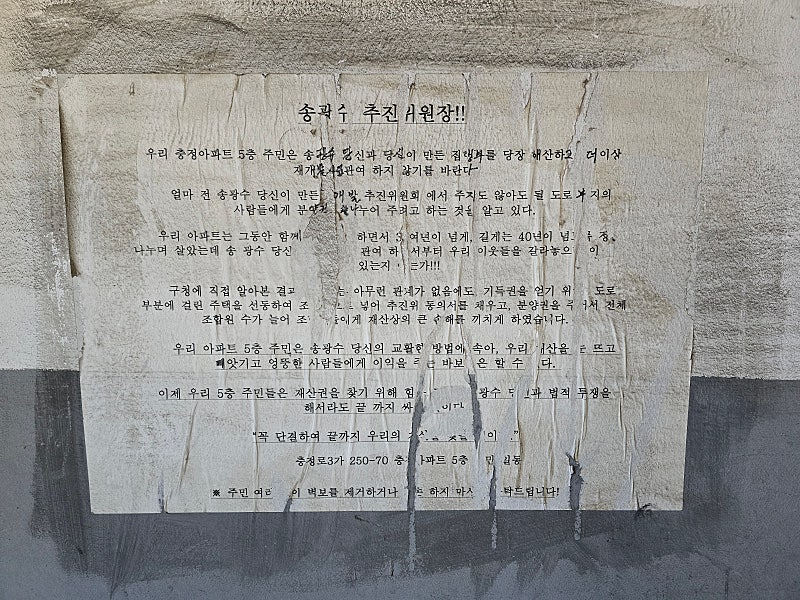 송광수 추진위원장!!
우리 충정아파트 5층 주민은 송광수 당신과 당신이 만든 집행부를 당장 해산하고 더이상
관여 하지 않기를 바란다
얼마 전 송광수 당신이 만든 개발 추진위원회 에서 주지도 않아도 될 도로부지의
사람들에게 나누어 주려고 하는 것을 알고 있다.
우리 아파트는 그동안 함께 하면서 여년이 넘게, 길게는 40년이 넘게
나누며 살았는데 송 광수 당신 관여 하 서부터 우리 이웃들을 갈라놓
있는지
구청에 직접 알아본 결과 아무런 관계가 없음에도, 기득권을 얻기 위 도로
부분에 걸린 주택을 선동하여 넣어 추진위 동의서를 채우고, 분양권을 주어서 전체
조합원 수가 늘어 재산상의 큰 손해를 끼치게 하였습니다.
우리 아파트 5층 주민은 송광수 당신의 교활한 방법에 속아, 우리 재산을 눈 뜨고
빼앗기고 엉뚱한 사람들에게 이익을 주는 바보 할 수 다.
이제 우리 5층 주민들은 재산권을 찾기 위해 당신과 법적 투쟁을
해서라도 끝 까지 이다
"꼭 단결하여 끝까지 우리의
충정로3가 250-70 충정아파트 5층 주민 일동
※ 주민 여러 이 벽보를 제거하거나 하지 마 부탁드립니다!